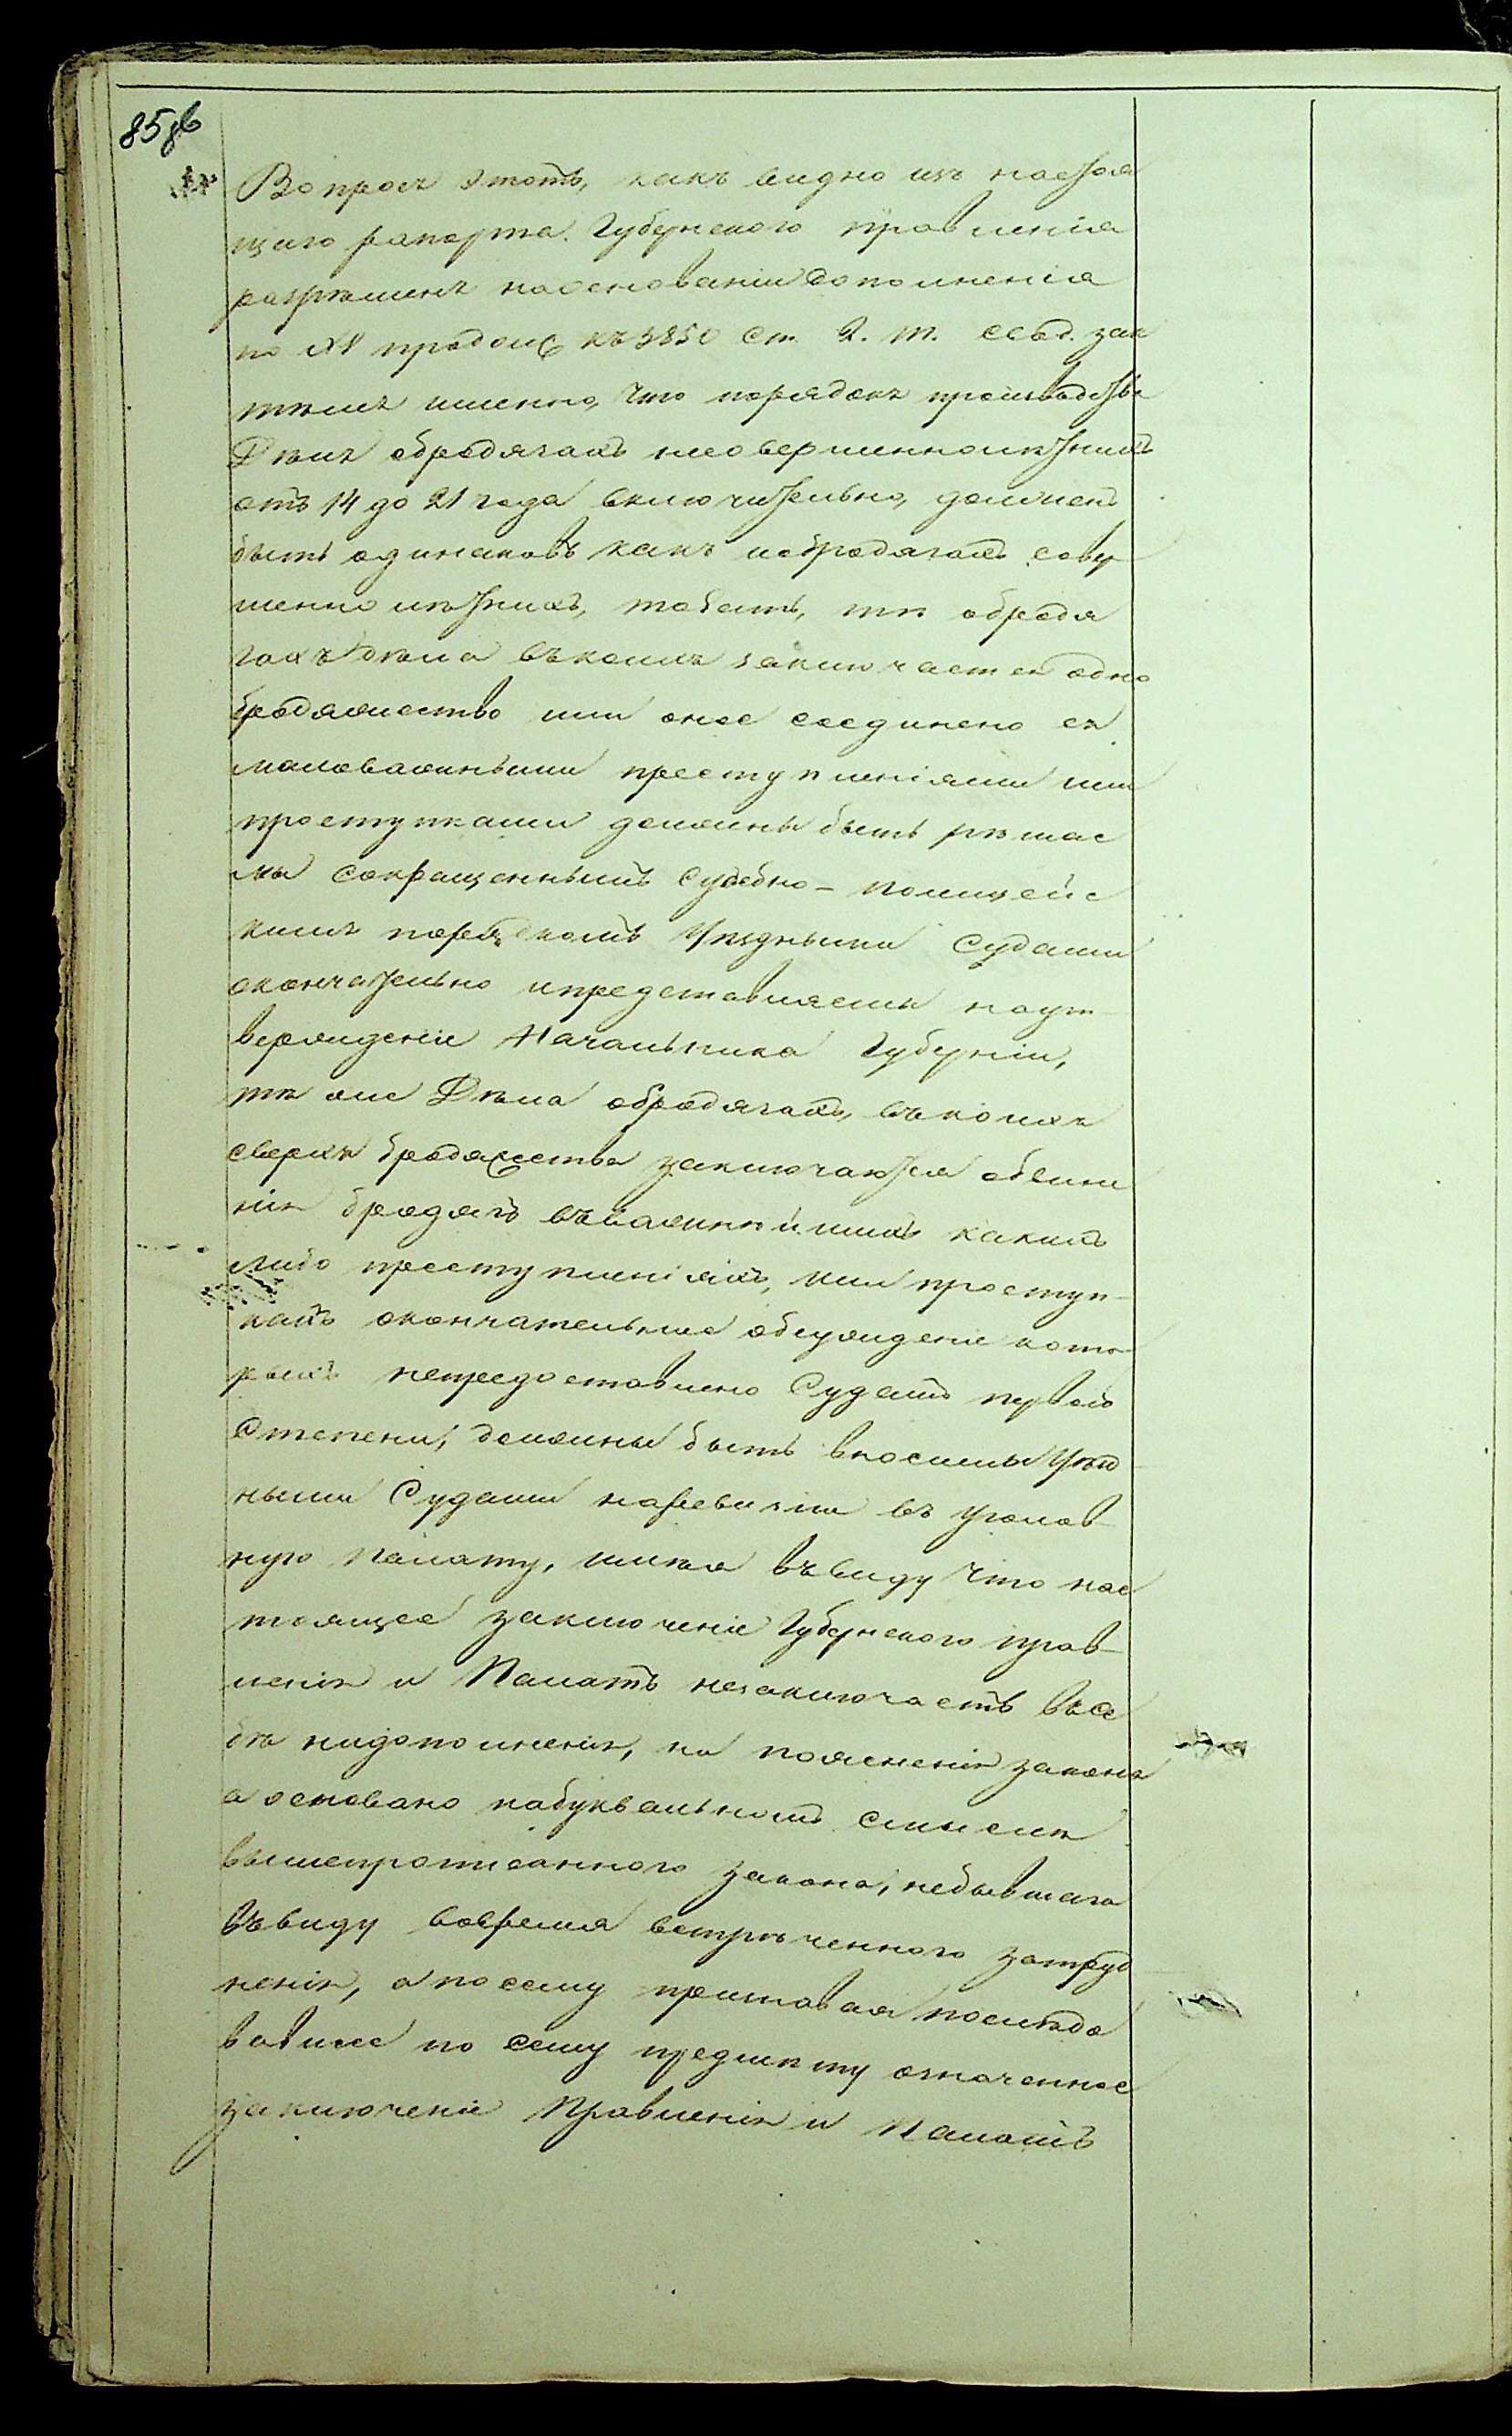 85 об
Вопросъ этотъ, какъ видно изъ настоя
щаго рапорта Губернскаго Правленія
разрѣшенъ наоснованіи дополненія
по XV продолж къ 3850 ст. 2. т. Свод. зак
тѣмъ именно, что порядокъ производства
Дѣлъ обродягахъ несовершеннолѣтнихъ
отъ 14 до 21 года включительно, долженъ
быть одинаковъ какъ иобродягахъ совер
шеннолѣтнихъ, тоесть, тѣ обродя
гахъ дѣла въкоихъ заключается одно
бродяжество или оное соединено съ
маловажными преступленіями или
проступками должны быть рѣшае
мы сокращеннымъ Судебно-полицейс
кимъ порядкомъ Уѣздными Судами
окончательно ипредставляемы наут-
вержденіе Начальника Губерніи,
тѣ же Дѣла обродягахъ, въкоихъ
сверхъ бродяжества заключаются обвине
нія бродягъ въважнѣйшихъ какихъ
либо преступленіяхъ, или проступ-
кахъ окончательное обсужденіе кото-
рыхъ непредоставлено Судамъ первой
Степени, должны быть вносимы Уѣзд
ными Судами наревизію въ Уголов-
ную Палату, имѣя ввъиду что нас
тоящее заключеніе Губернскаго Прав-
ленія и Палатъ незаключаетъ въсе
бѣ нидополненія, ни поясненія закона
а основано набуквальномъ смыслѣ
вышепрописаннаго закона, небывшаго
ввъиду вовремя встрѣченнаго затруд
ненія, а посему признавая послѣдо
вавшее по сему предмѣту означенное
заключеніе Правленія и Палатъ